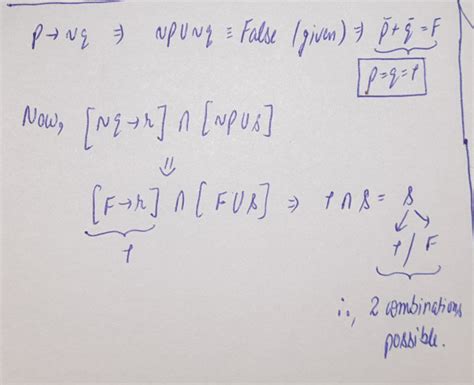 p → ~q ⇒ ~p∪~q ≡ False (given) ⇒ p̄ + q̄ = F
p=q=1
Now, [~q → r] ∩ [~p∪s]
⇓
[F → r] ∩ [F∪s] ⇒ 1 ∩ s = s
1 1 / F
∴, 2 combinations
possible.